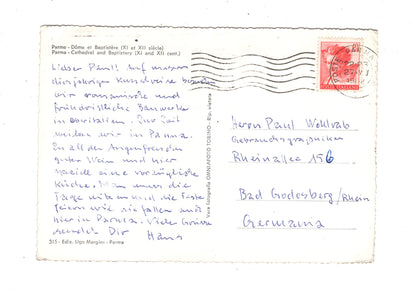 Parma - Dôme et Baptistère (XI et XII siècle)
Parma - Cathedral and Baptistery (XI and XII cent.)
Lieber Paul! Auf unserer
diesjährigen Kunstreise
wir romanische und
frühchristliche Bauwerke
in Oberitalien. Zur Zeit
weilen wir in Parma.
Zu all den Augenfreuden
guter Wein und hier
speziell eine vorzügliche
Küche. Man muss die
Tage nützen und die Feste
feiern wie sie fallen auf
hier in Parma. Viele Grüsse
sendet Dir Hans
315 - Ediz. Ugo Margini - Parma
Vera Fotografia OMNIAFOTO TORINO - Rip. vietata
Herrn Paul Wohlrab
Gebrauchsgraphiker
Rheinallee 156
Bad Godesberg/Rhein
Germania